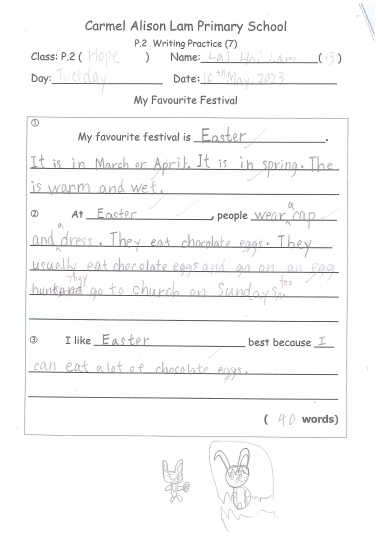 Carmel Alison Lam Primary School
P.2 Writing Practice (7)
Class: P.2 ( Hope ) Name: Lai Hoi Lam ( 13 )
Day: Tuesday Date: 16th May, 2023
My Favourite Festival
① My favourite festival is Easter.
It is in March or April. It is in spring. The
is warm and wet.
② At Easter, people wear a cap
and a dress. They eat chocolate eggs. They
usually eat chocolate eggs and go on an egg
hunt and They go to church on Sundays too.
③ I like Easter best because I
can eat a lot of chocolate eggs.
( 40 words)